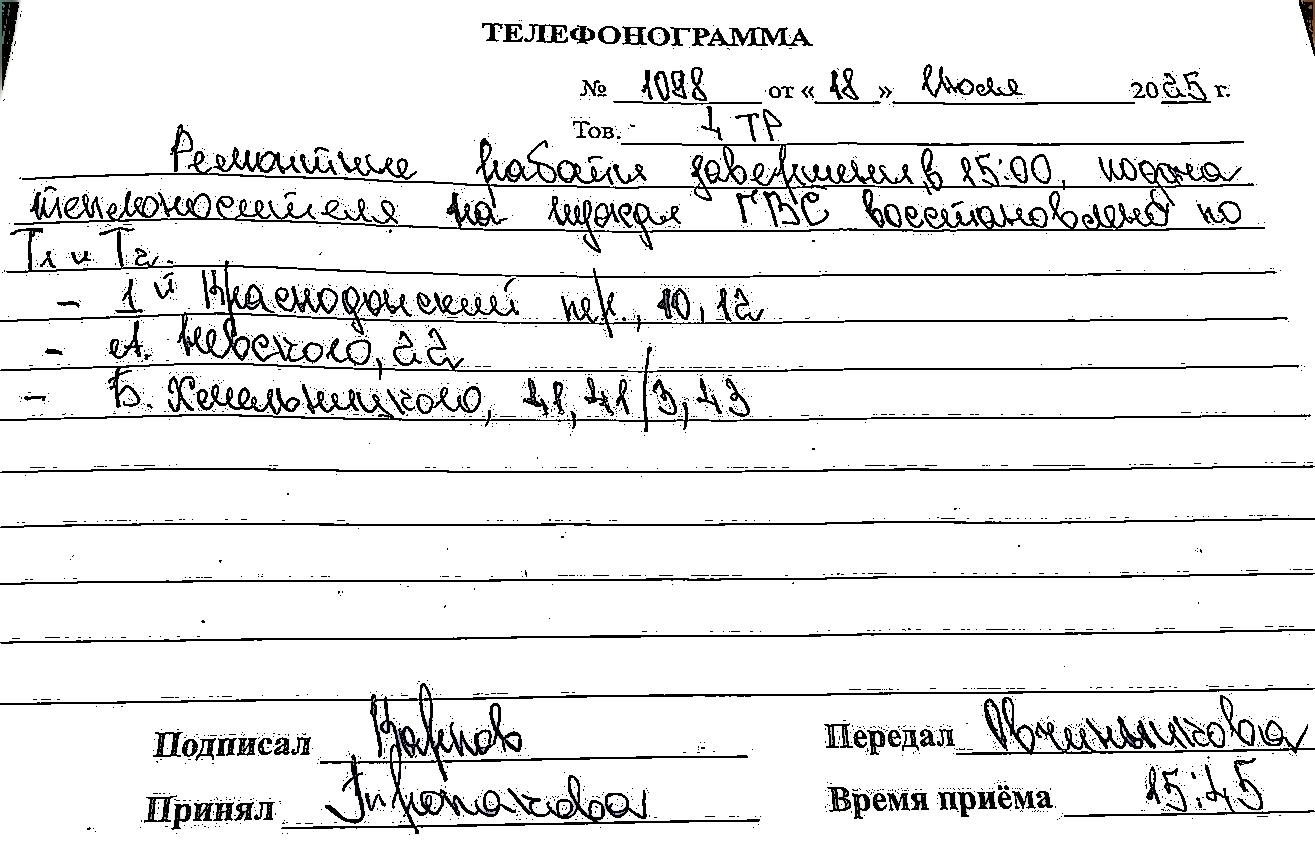 ТЕЛЕФОНОГРАММА
№ 1098 от «18» Июля 2025 г.
Тов. 4 ТР
Ремонтные работы завершены в 15:00, подача
теплоносителя на нужды ГВС восстановлено по
Т1 и Т2.
- 1й Краснодонский пер., 10, 12
- А. Невского, 22
- Б. Хмельницкого, 41, 41/3, 43
Подписал Карпов Передал Овчинникова
Принял Время приёма 15:45